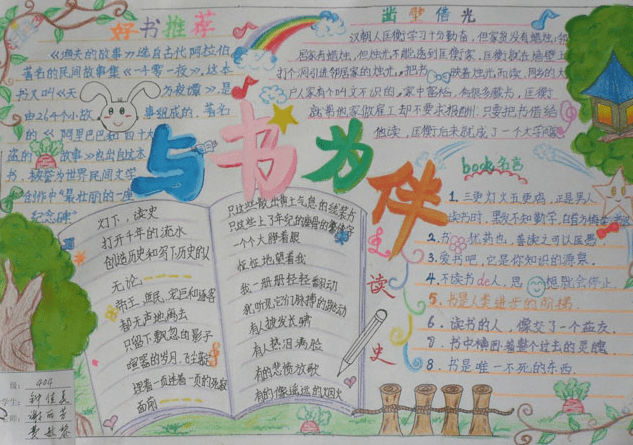 好书推荐
《渔夫的故事》选自古代阿拉伯
著名的民间故事集《一千零一夜》,这本
书又叫《天方夜谭》,是
由264个小故事组成的,著名
的《阿里巴巴和四十大
盗的故事》也出自这本
书,被誉为世界民间文学
创作中"最壮丽的一座
纪念碑"
凿壁借光
汉朝人匡衡学习十分勤奋,但家贫没有蜡烛,邻
居家有蜡烛,但烛光不能透到匡衡家,匡衡就在墙壁上
打个洞引进邻居家的烛光,把书映着烛光而读,同乡的大
户人家有个叫文不识的,家中富裕,有很多藏书,匡衡
就易他家做雇工却不要求报酬,只要把书借给
他读,匡衡后来就成了一个大学
与书为伴
灯下,读史
打开千年的流水
创造历史和写下历史的人
无论
帝王,庶民,宠臣和逐客
都无声地离去
只留下飘忽的影子
喧嚣的岁月,飞尘
面前
只这些散出黄土气息的线装书
一个个睁着眼
怪怪地望着我
我一册册轻轻翻动
我听见它们脉搏的跳动
有人披发长啸
有人热泪满脸
有的悲愤放歌
有的像遥远的烟火
读史
book名言
1.三更灯火五更鸡,正是男人
读书时,黑发不知勤学,白首方悔
2.书犹药也,善读之可以医愚
3.爱书吧,它是你知识的源泉
4.不读书de人,思想就会停止.
5.书是人类进步的阶梯.
6.读书的人,像交了一个益友.
7.书中横卧着整个过去的灵魂
8.书是唯一不死的东西.
404